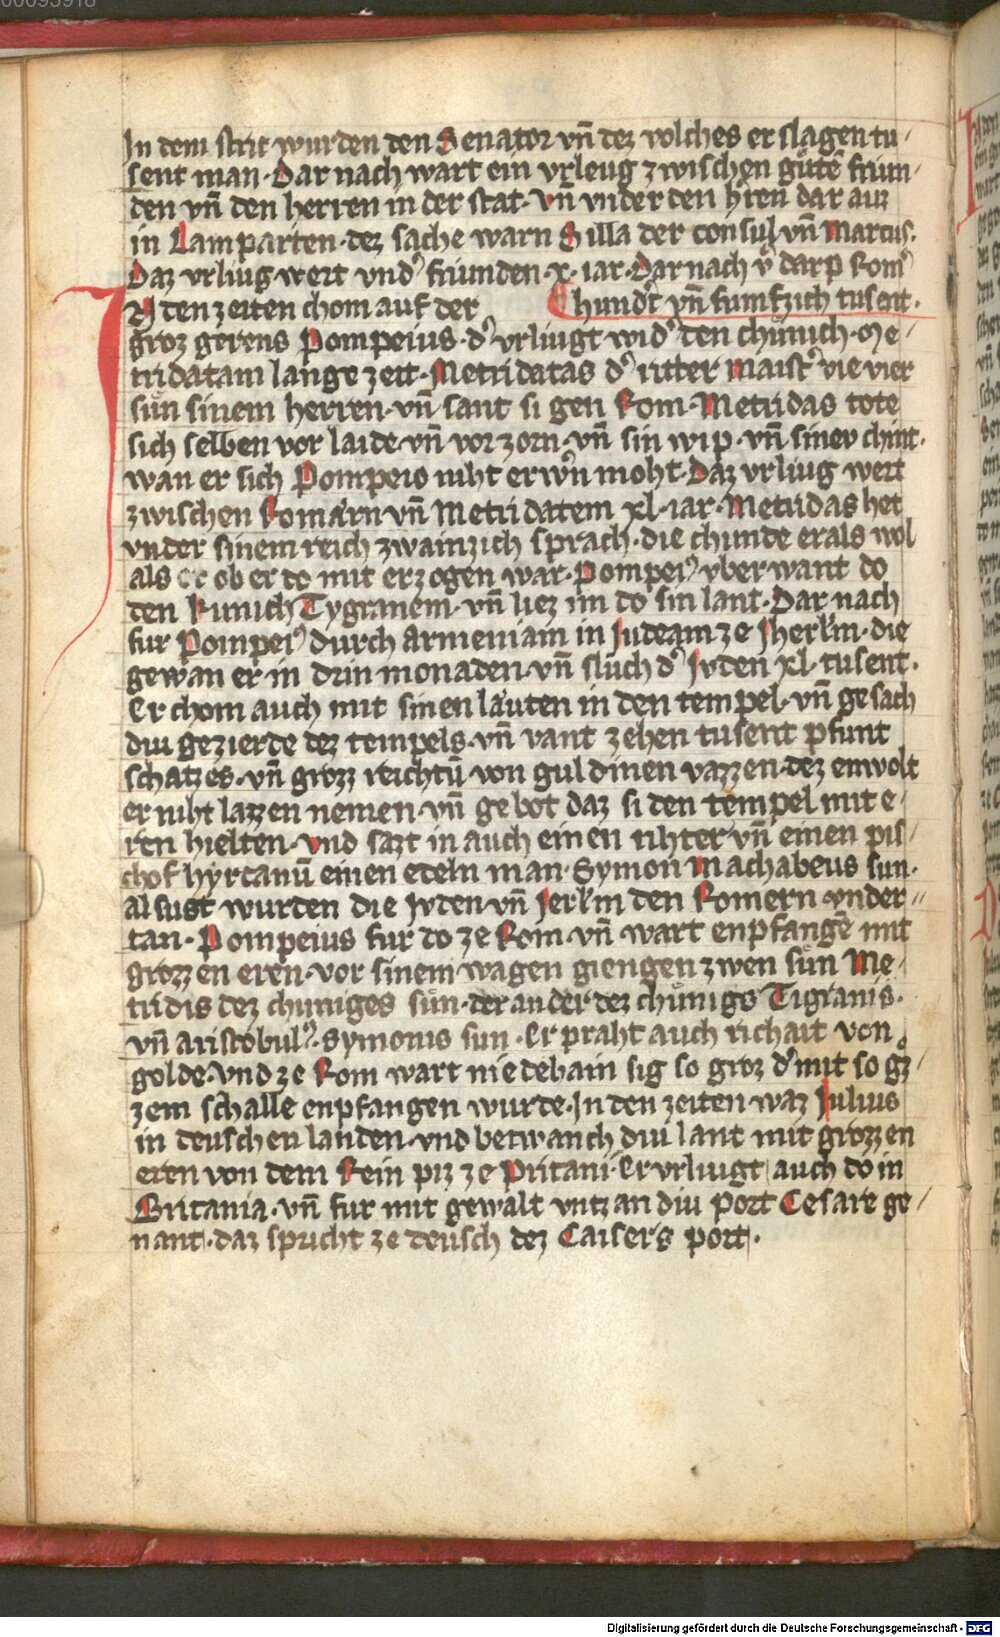 00093918
In dem strit wurden den Senator vn̄ dez volches er slagen tu/
sent man· Dar nach wart ein vrleug zwischen gůte friun/
den vn̄ den herren in der stat· vn̄ vnder den h̓ren dar auz
in Lamparten· dez sache warn Silla der consul vn̄ Marcus·
Daz vrliug wert vnd̓ friunden ·x· iar· Dar nach v̓darp Rom̓
N den zeiten chom auf der
C hund̓t vn̄ fumfzich tusent·
groz gerens Pompeius· d̓ vrliugt wid̓ den chůnich· Me/
tridatam lange zeit· Metridatas d̓ ritter maist̓ vie vier
sůn sinem herren· vn̄ sant si gen Rom· Metridas tote
sich selben vor laide· vn̄ vor zorn· vn̄ sin wip· vn̄ sinev chint·
wan er sich Pompeio niht erw̓n moht· Daz vrliug wert
zwischen Romarn vn̄ Metridatem xl· iar· Metridas het
vnder sinem reich zwainzich sprach· die chunde er als wol
als er ob er do mit erzogen wär· Pompei⁹ vberwant do
den kunich Tygranem· vn̄ liez im do sin lant· Dar nach
fur Pompei⁹ durch armeniam in Judeam ze Jherl̄m· die
gewan er in drin monaden· vn̄ sluch d̓ Jvden xl· tusent·
Er chom auch mit sinen läuten in den tempel· vn̄ gesach
diu gezierde dez tempels· vn̄ vant zehen tusent pfunt
schatzes· vn̄ grozz reichtū von guldinen vazzen· dez enwolt
er niht lazzen nemen· vn̄ gebot daz si den tempel mit e/
ren hielten· vnd sazt in auch einen rihter vn̄ einen pis/
chof hyrcanū einen edeln man· Symon machabeus sun·
al sust wurden die Jvden vn̄ Jerl̄m den Romern vnder//
tan· Pompeius fur do ze Rom· vn̄ wart enpfangē mit
grozzen eren· vor sinem wagen giengen zwen sůn Me/
tridis dez chuniges sůn· der ander dez chůnigs Tigranis·
vn̄ aristobul⁹· Symonis sun· Er praht auch richait von
golde· vnd ze Rom wart nie dehain sig so groz d̓ mit so gͦz/
zem schalle enpfangen wurde· In den zeiten waz Julius
in deuschen landen· vnd betwanch diu lant mit grozzen
eren von dem Rein piz ze Pritani· Er vrliugt auch do in
Britania· vn̄ fur mit gewalt vntz an diu port Cesare ge/
nant· daz spricht ze deusch dez Caisers port·
Digitalisierung gefördert durch die Deutsche Forschungsgemeinschaft - DFG